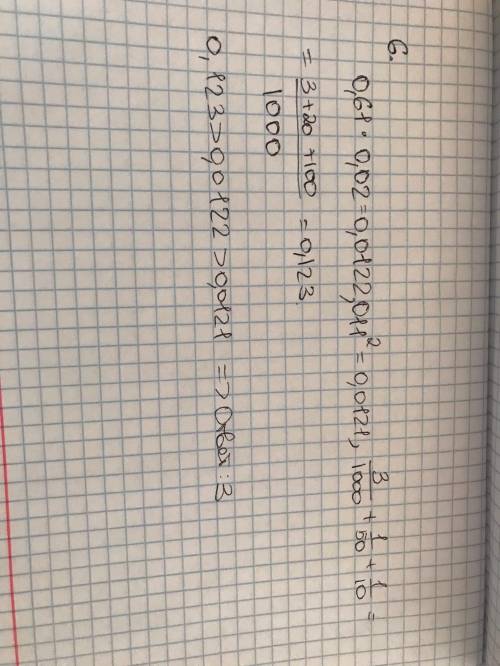 6.
0,61 · 0,02 = 0,0122, 0,11² = 0,0121, 3/1000 + 1/50 + 1/10 =
= 3+20+100/1000 = 0,123.
0,123 > 0,0122 > 0,0121 => Ответ: 3